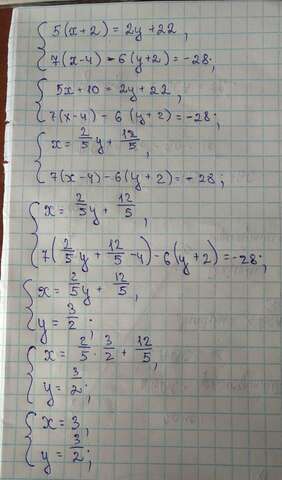 5(x+2) = 2y + 22,
7(x-4) - 6(y+2) = -28;
5x + 10 = 2y + 22,
7(x-4) - 6(y+2) = -28;
x = 2/5 y + 12/5,
7(x-4) - 6(y+2) = -28;
x = 2/5 y + 12/5,
7(2/5 y + 12/5 - 4) - 6(y+2) = -28;
x = 2/5 y + 12/5,
y = 3/2;
x = 2/5 · 3/2 + 12/5,
y = 3/2;
x = 3,
y = 3/2;